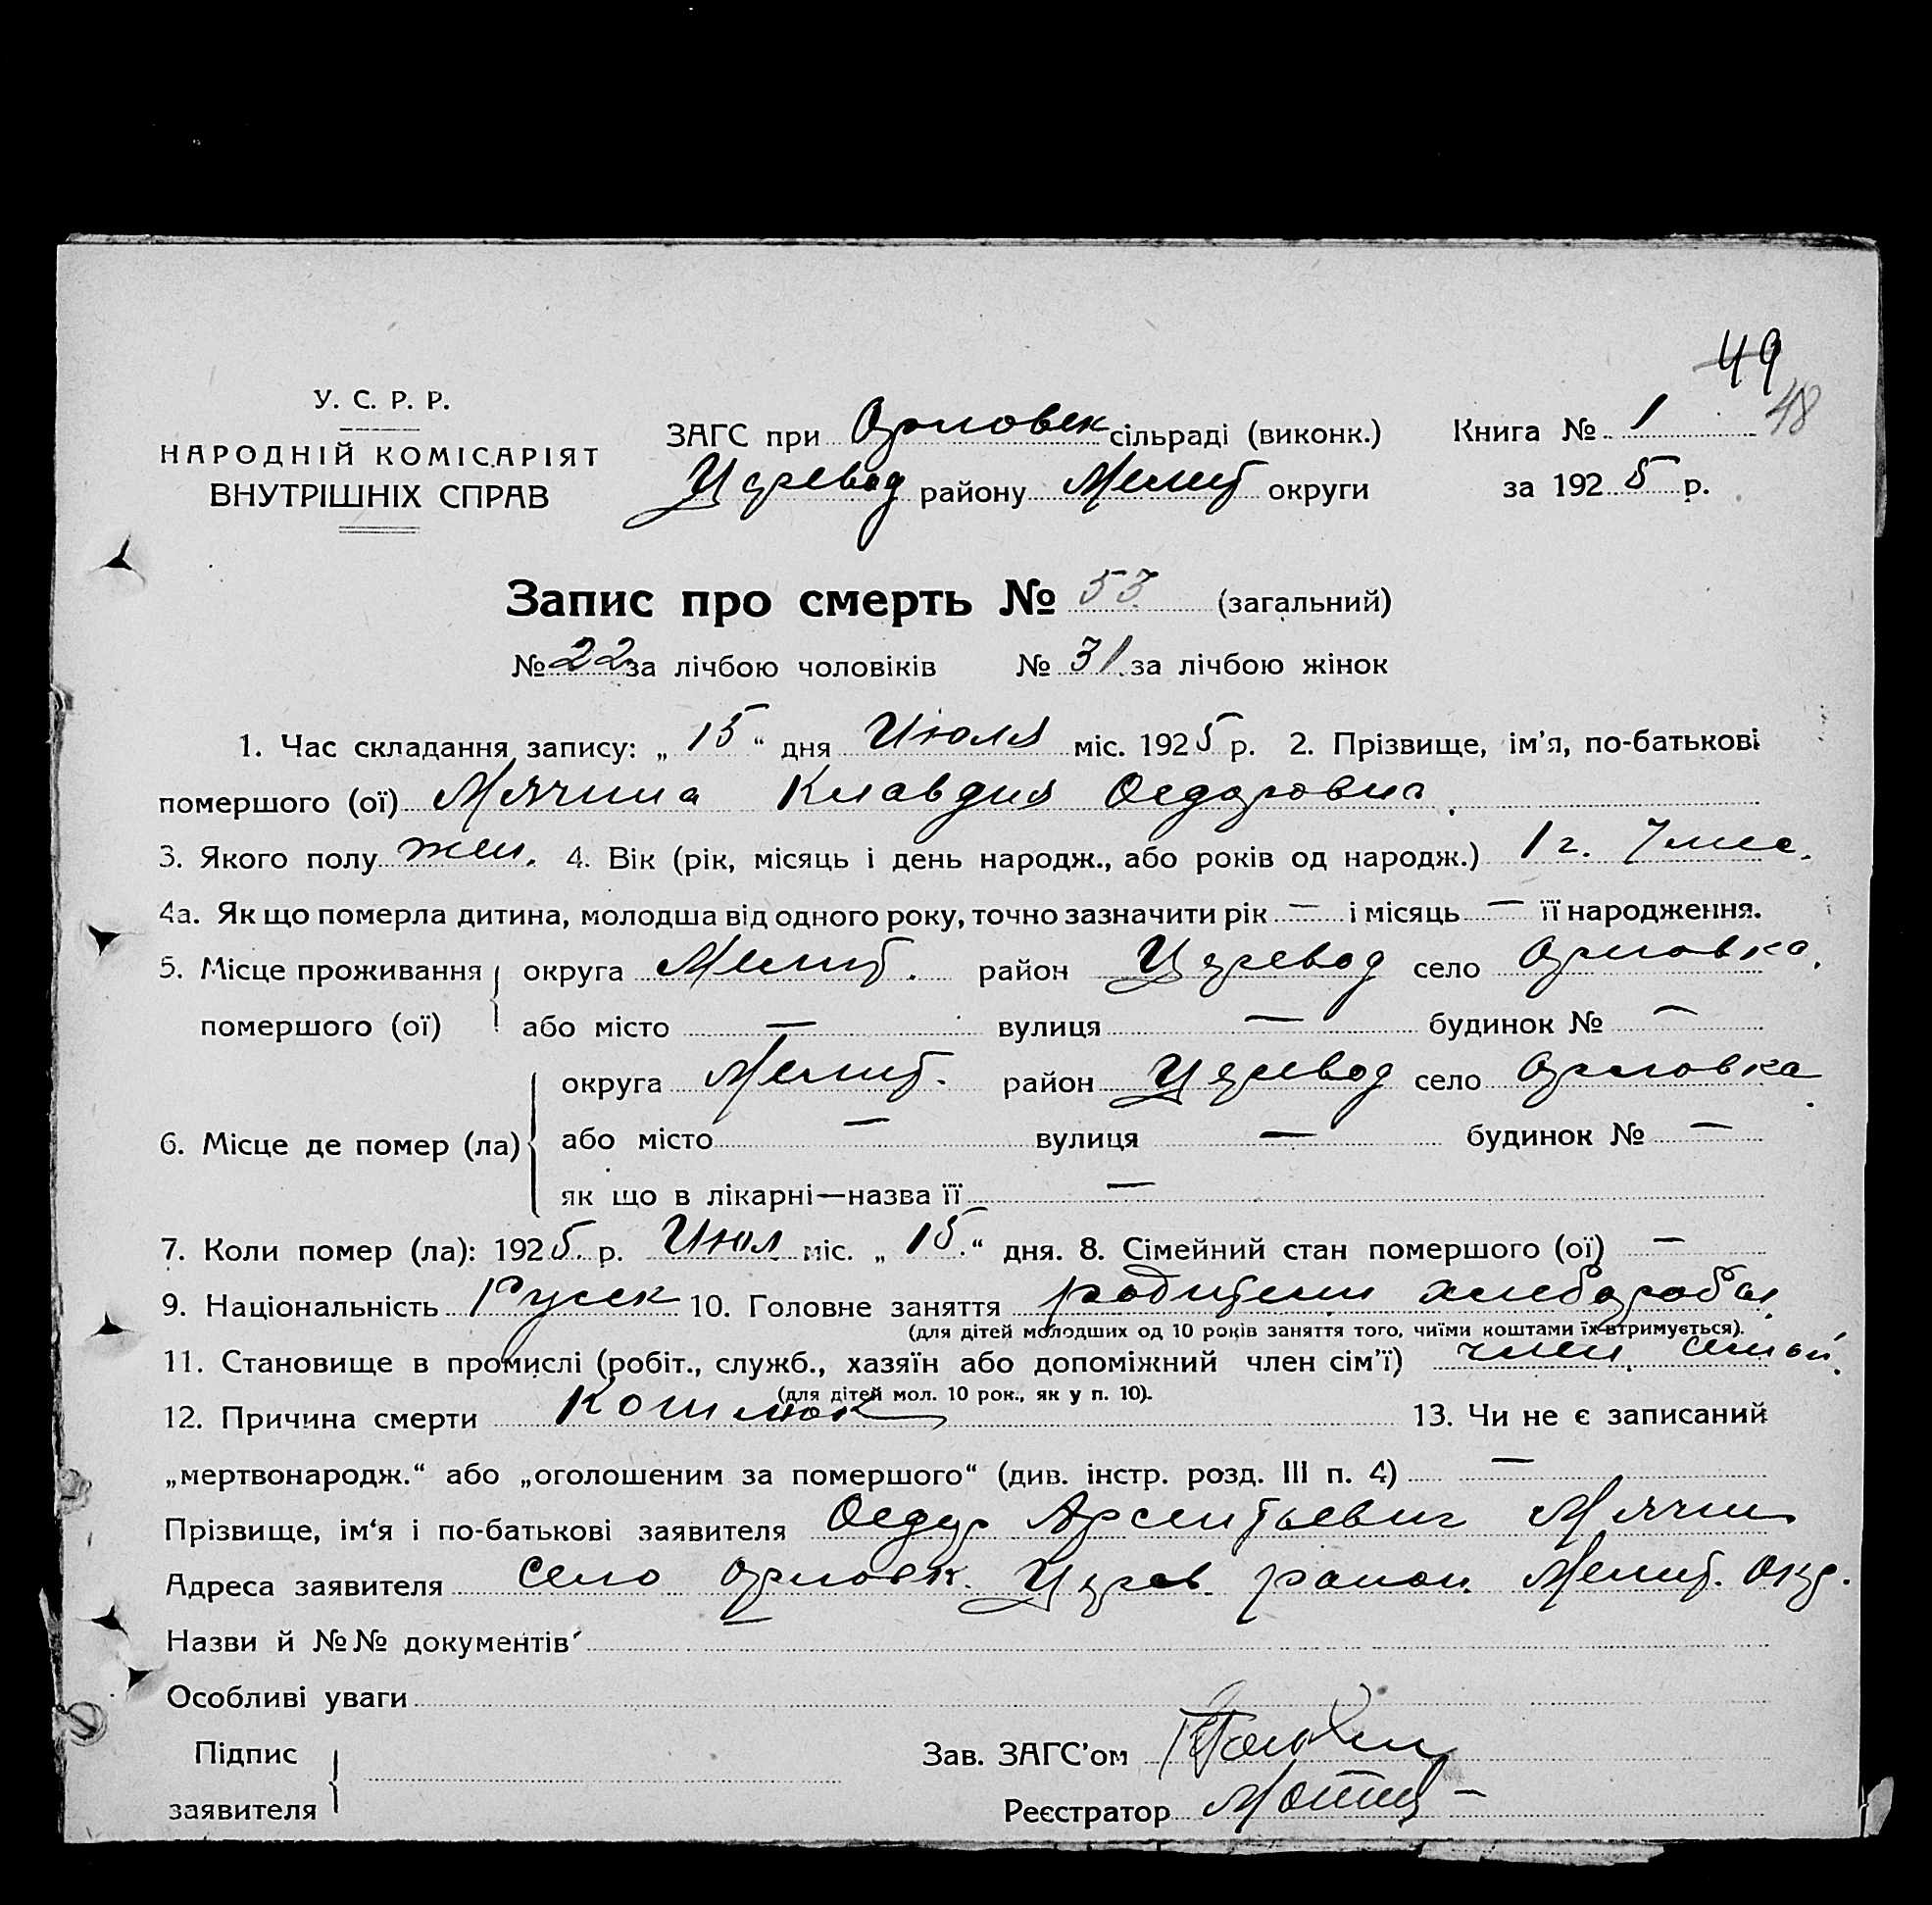 49
48
У. С. Р. Р.
НАРОДНІЙ КОМІСАРІЯТ
ВНУТРІШНІХ СПРАВ
ЗАГС при Орловск сільраді (виконк.)
Книга № 1
Цурєвод району Мелит округи
за 1925 р.
Запис про смерть № 53 (загальний)
№ 22 за лічбою чоловіків № 31 за лічбою жінок
1. Час складання запису: „ 15 “ дня Июля міс. 1925 р. 2. Прізвище, ім’я, по-батькові
помершого (ої) Мячина Клавдия Федорович
3. Якого полу жен. 4. Вік (рік, місяць і день народж., або років од народж.) 1 г. 7 мес.
4а. Як що померла дитина, молодша від одного року, точно зазначити рік — і місяць — її народження.
5. Місце проживання округа Мелит. район село Орловка.
помершого (ої) або місто — вулиця — будинок № —
округа Мелит. район село Орловка.
6. Місце де помер (ла) або місто — вулиця — будинок № —
як що в лікарні—назва її —
7. Коли помер (ла): 1925 р. Июл міс. „ 15 “ дня. 8. Сімейний стан помершого (ої) —
9. Національність Русск 10. Головне заняття родители хлеборобы
(для дітей молодших од 10 років заняття того, чиїми коштами їх втримується).
11. Становище в промислі (робіт., служб., хазяїн або допоміжний член сім’ї) член семьи.
(для дітей мол. 10 рок., як у п. 10).
12. Причина смерти Кошлюк 13. Чи не є записаний
„мертвонародж.“ або „оголошеним за помершого“ (див. інстр. розд. III п. 4) —
Прізвище, ім‘я і по-батькові заявителя Федор Арсентьевич Мячин
Адреса заявителя Село Орловк. район Мелит. Окр.
Назви й №№ документів —
Особливі уваги
Підпис
заявителя
Зав. ЗАГС’ом
Реєстратор